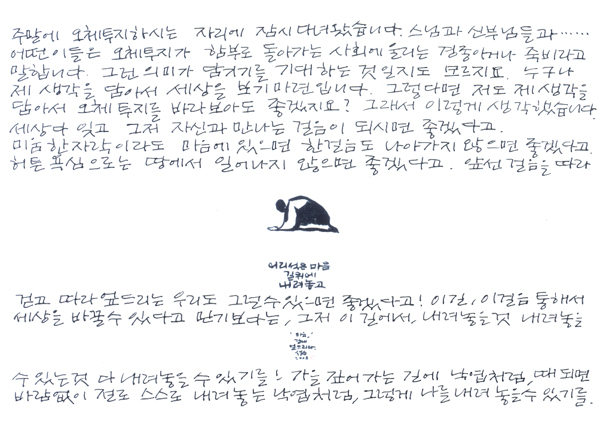 주말에 오체투지하시는 자리에 잠시 다녀왔습니다. 스님과 신부님들과……
어떤 이들은 오체투지가 함부로 돌아가는 사회에 울리는 경종이거나 죽비라고
말합니다. 그런 의미가 담겨지기를 기대하는 것일지도 모르지요. 누구나
제 생각을 담아서 세상을 보기 마련입니다. 그렇다면 저도 제 생각을
담아서 오체투지를 바라보아도 좋겠지요? 그래서 이렇게 생각했습니다.
세상 다 잊고 그저 자신과 만나는 걸음이 되시면 좋겠다고.
미움 한 자락이라도 마음에 있으면 한걸음도 나아가지 않으면 좋겠다고.
허튼 욕심으로는 땅에서 일어나지 않으면 좋겠다고. 앞선 걸음을 따라
어리석은 마음
길위에
내려놓고
걷고 따라 엎드리는 우리도 그럴 수 있으면 좋겠다고! 이 길, 이 걸음 통해서
세상을 바꿀 수 있다고 믿기보다는, 그저 이 길에서, 내려놓을 것 내려놓을
수 있는 것 다 내려놓을 수 있기를! 가을 깊어가는 길에 낙엽처럼, 때 되면
바람없이 절로 스스로 내려놓는 낙엽처럼, 그렇게 나를 내려놓을 수 있기를.